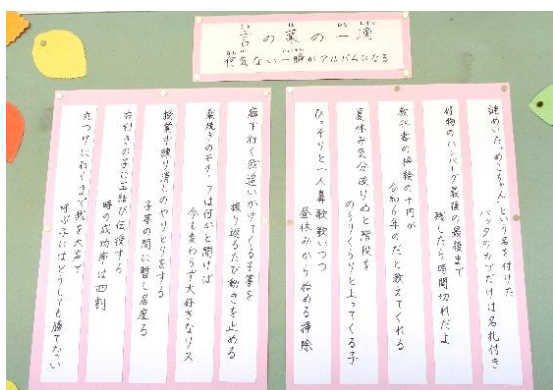 言の葉の一滴
何気ない一瞬がアルバムになる
謎めいた「めこちゃん」という名を付けた
バッタのカゴだけは名札付き
好物のハンバーグ最後の最後まで
残したら時間切れだよ
教科書の挿絵の千円が
令和6年のだと教えてくれる
夏休み気分抜けぬと階段を
のらりくらりと上ってくる子
ひっそりと一人鼻歌歌いつつ
昼休みから始める掃除
廊下行く我追いかけてくる子等を
振り返るたび動きを止める
楽焼きのモチーフは何かと聞けば
今も変わらず大好きなリス
授業中練り消しのやりとりをする
子等の間に暫し居座る
右利きの子に玉結び伝授する
の成功率は四割
に行くまで我を大声で
呼ぶ子にはどうしても勝てない